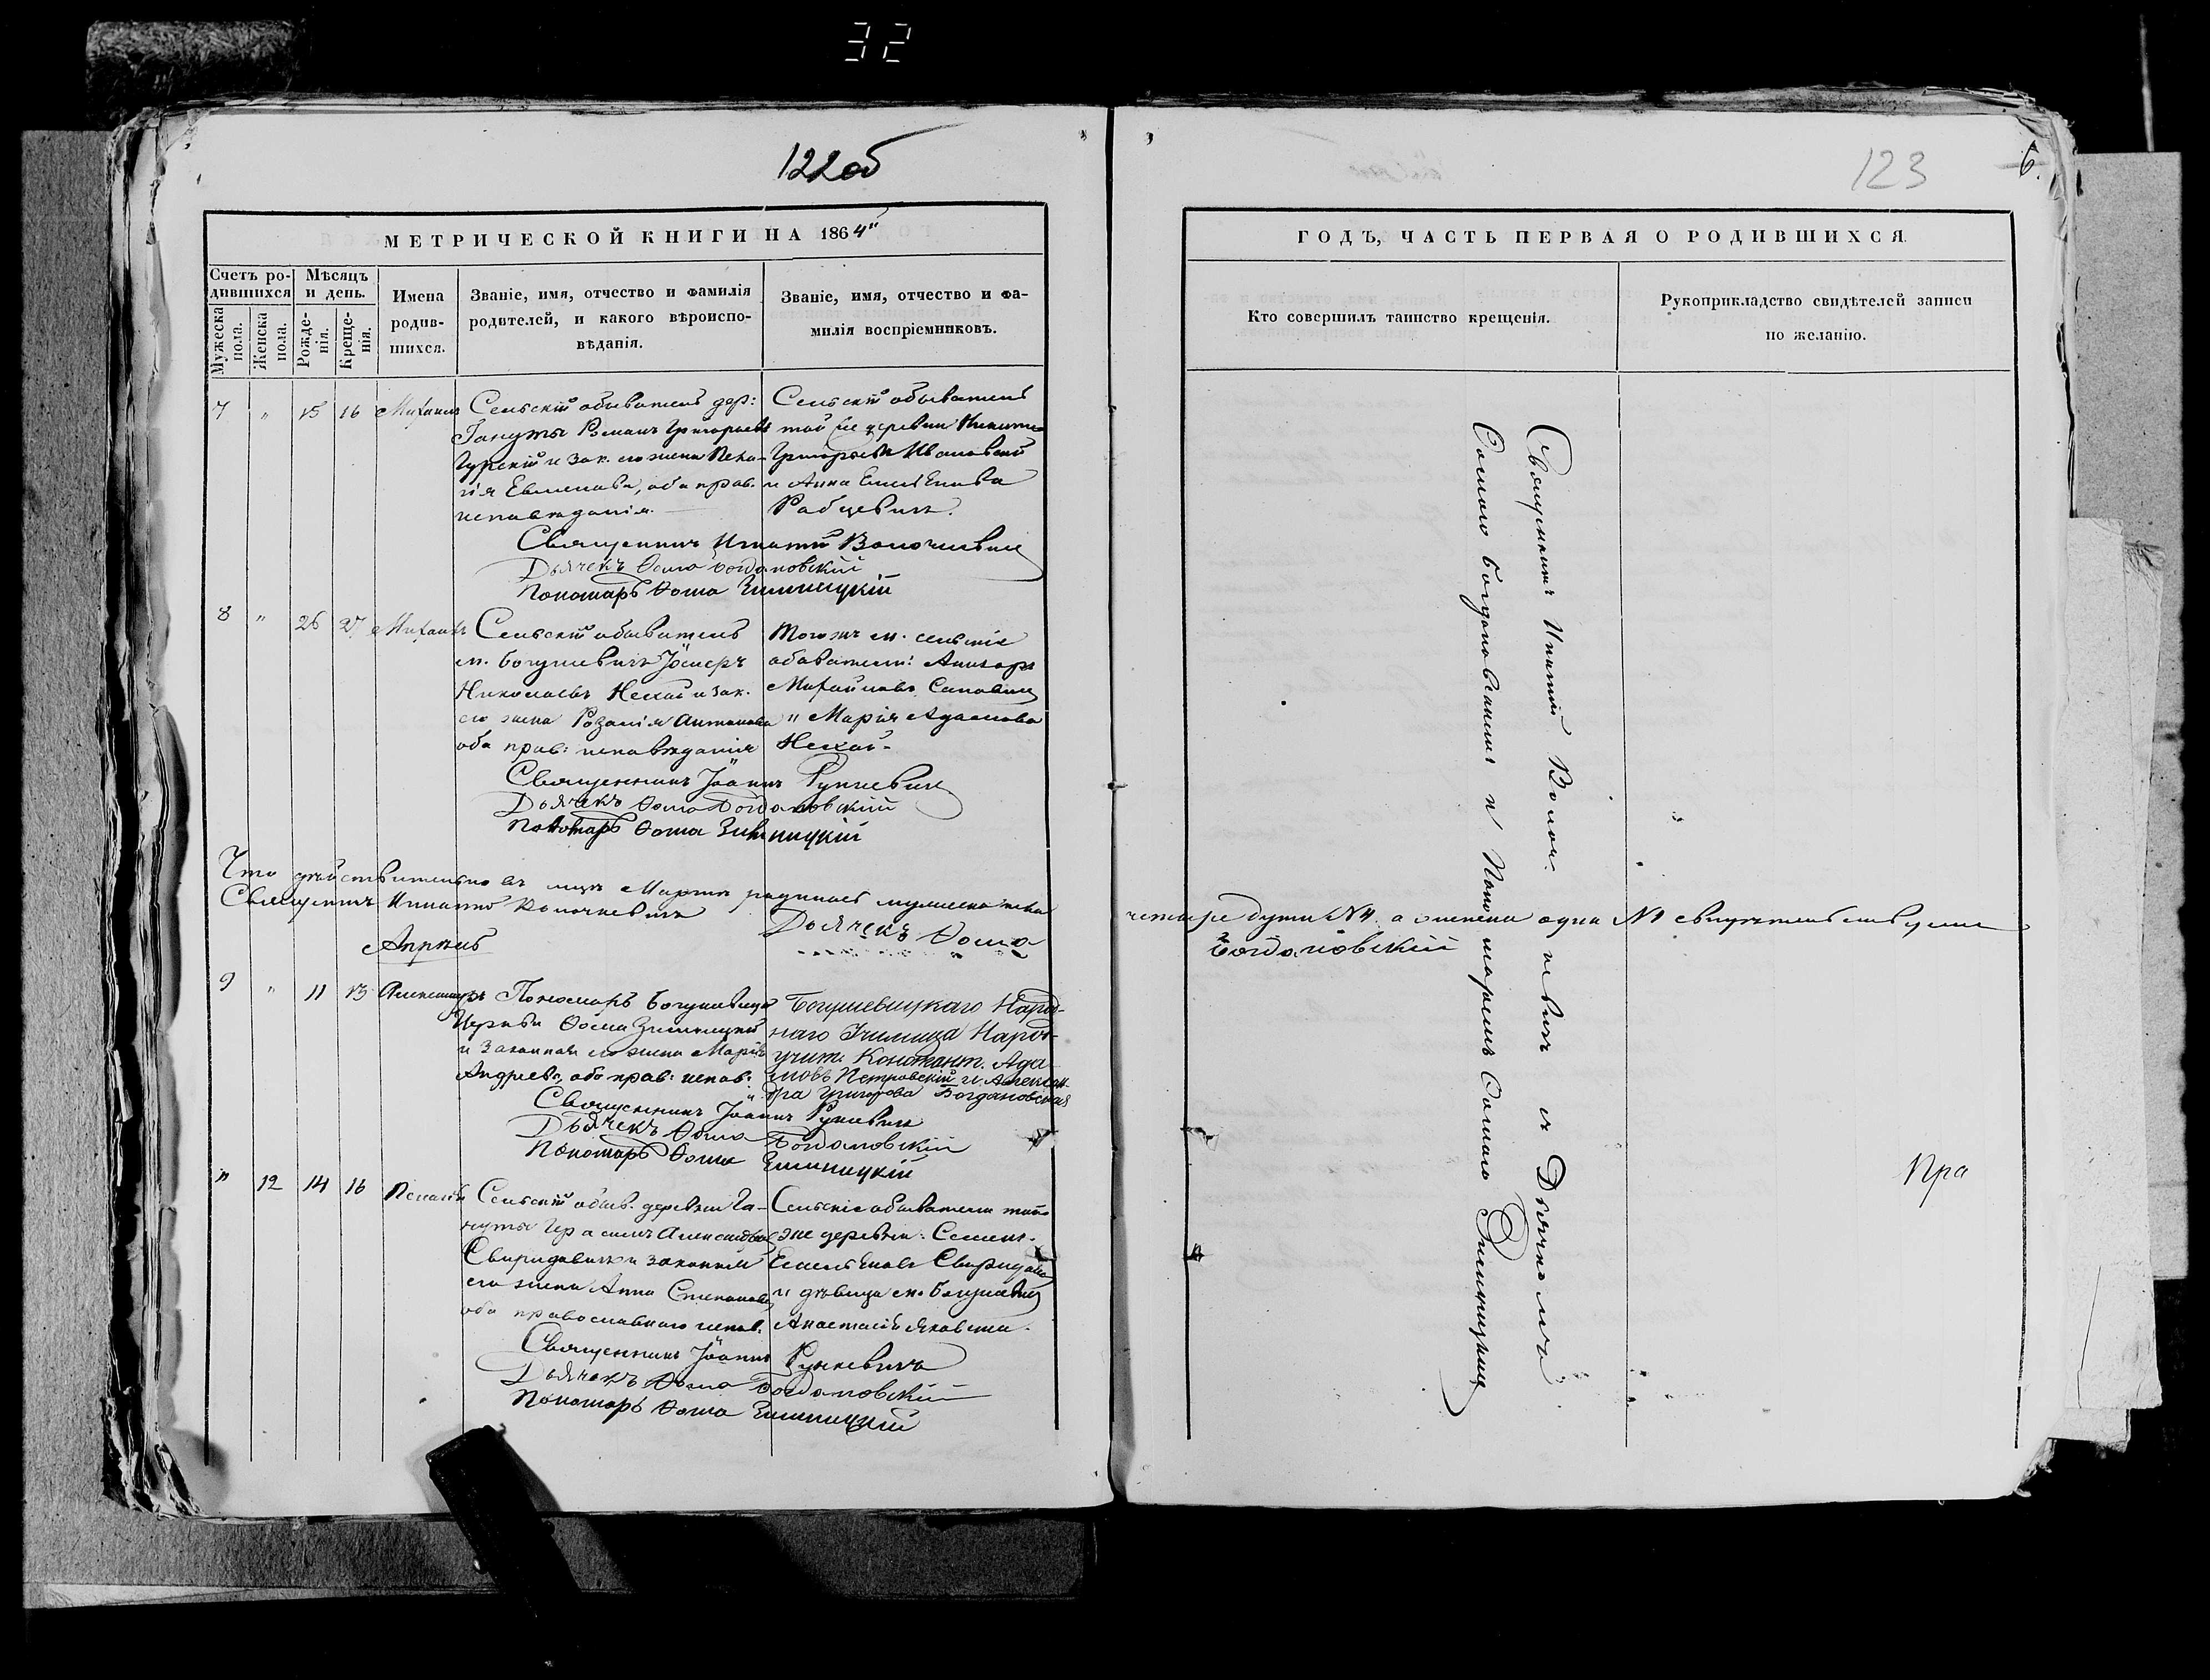 32
122об
МЕТРИЧЕСКОЙ КНИГИ НА 1864"
Счетъ ро-
дившихся
Мѣсяцъ
и день.
Мужеска
пола.
Женска
пола.
Рожде-
нія.
Креще-
нія.
Имена
родив-
шихся.
Званіе, имя, отчество и фамилія
родителей, и какого вѣроиспо-
вѣданія.
Званіе, имя, отчество и фа-
милія воспріемниковъ.
7 " 15 16 Михаилъ
Сельскій обыватель дер:
Романъ Григорьевъ
и зак. его жена Пела-
гія оба прав.
исповѣданія.
Сельскій обыватель
той же деревни Никита
Григорьевъ Ивановскій
и Анна Емельянова
Рабцевичъ.
Священникъ Игнатій Волочкевичъ
Дьячекъ Ѳома Богдановскій
Пономарь Ѳома Зимницкій
8 " 26 27 Михаилъ
Сельскій обыватель
м. Богушевичъ
Николаевъ и зак.
его жена Розалія Антонова
оба прав: исповѣданія
Того же м. сельскіе
обыватели:
Михайловъ
и Марія Адамова
Священникъ Іоаннъ Рункевичъ
Дьячекъ Ѳома Богдановскій
Пономарь Ѳома Зимницкій
Что дѣйствительно въ м-цѣ Мартѣ родилось мужеска пола
Священникъ Игнатій Волочкевичъ
Дьячекъ Ѳома
Апрѣль
9 " 11 13 Александръ
Пономарь Богушевицк
Церкви Ѳома Зимницкій
и Законная его жена Марія
Андреева, оба прав: испов:
Богушевицкаго Народ-
наго Училища Народ.
учит. Константи. Ада
мовъ Петровскій и Алексан-
дра Григорова Богдановская
Священникъ Іоаннъ Рункевичъ
Дьячекъ Ѳома Богдановскій
Пономарь Ѳома Зимницкій
" 12 14 16
Сельскій обыв. деревни Га-
Герасимъ Александровъ
Свиридовичъ и законная
его жена Анна Степанова
оба православнаго испов.
Сельскіе обыватели той
же деревни: Семенъ
Емельяновъ Свиридов
и дѣвица м. Богушевич
Анастасія
Священникъ Іоаннъ Рункевичъ
Дьячекъ Ѳома Богдановскій
Пономарь Ѳома Зимницкій
123
6.
ГОДЪ, ЧАСТЬ ПЕРВАЯ О РОДИВШИХСЯ
Кто совершилъ таинство крещенія.
Рукоприкладство свидѣтелей записи
по желанію.
Священникъ Игнатій Волочкевичъ съ Дьячкомъ
Ѳомою Богдановскимъ и Пономаремъ Ѳомою Зимницкимъ
четыре души №4. а женска одна №1 свидѣтельствуемъ
Богдановскій
Пра